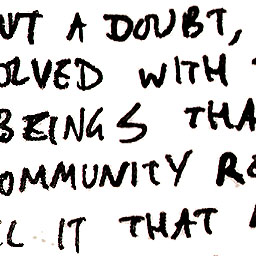 UT A DOUBT,
OLVED WITH
BEINGS THA
OMMUNITY RE
LL IT THAT